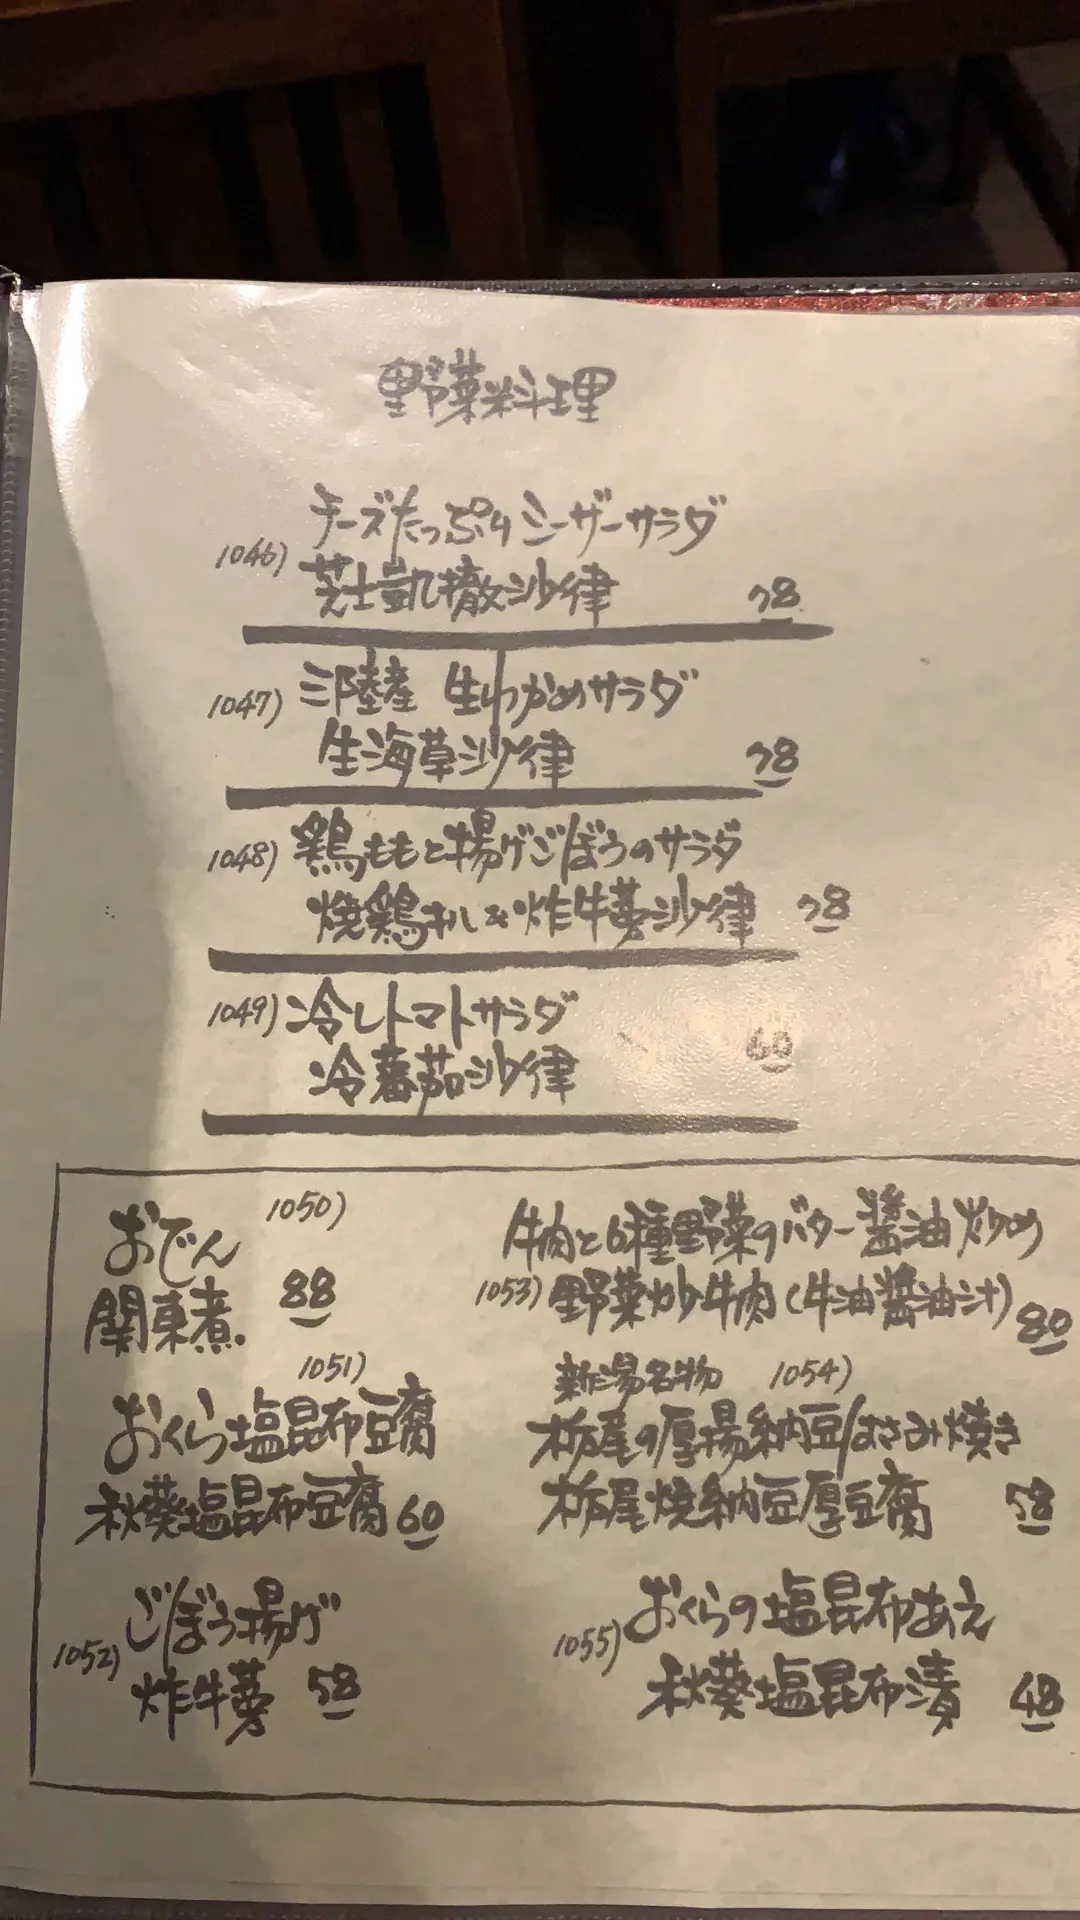 野菜料理
チーズたっぷりシーザーサラダ
1046)
芝士凱撒沙律 78
三陸産 生わかめサラダ
1047)
生海草沙律 78
1048) 鶏ももと揚げごぼうのサラダ
焼鶏 炸牛蒡沙律 78
1049) 冷しトマトサラダ
冷蕃茄沙律 60
1050)
おでん
関東煮 88
1051)
おくら塩昆布豆腐
秋葵塩昆布豆腐 60
ごぼう揚げ
1052)
炸牛蒡 58
牛肉と6種野菜のバター醤油炒め
1053) 野菜炒牛肉(牛油醤油汁) 80
新潟名物 1054)
栃尾の厚揚納豆はさみ焼き
栃尾焼納豆厚豆腐 58
おくらの塩昆布あえ
1055)
秋葵塩昆布漬 48